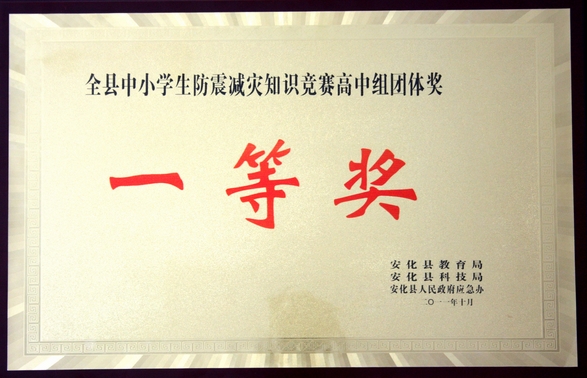 全县中小学生防震减灾知识竞赛高中组团体奖
一等奖
安化县教育局
安化县科技局
安化县人民政府应急办
二〇一一年十月